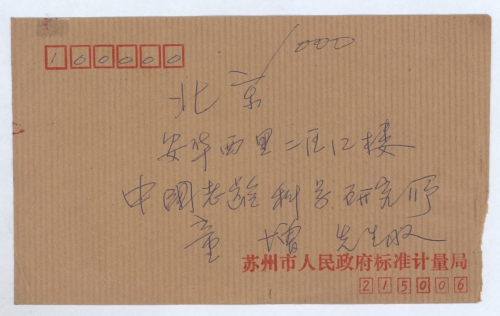 100000
1000
北京
安华西里二区12楼
中国老龄科学研究所
童增 先生收
苏州市人民政府标准计量局
215006